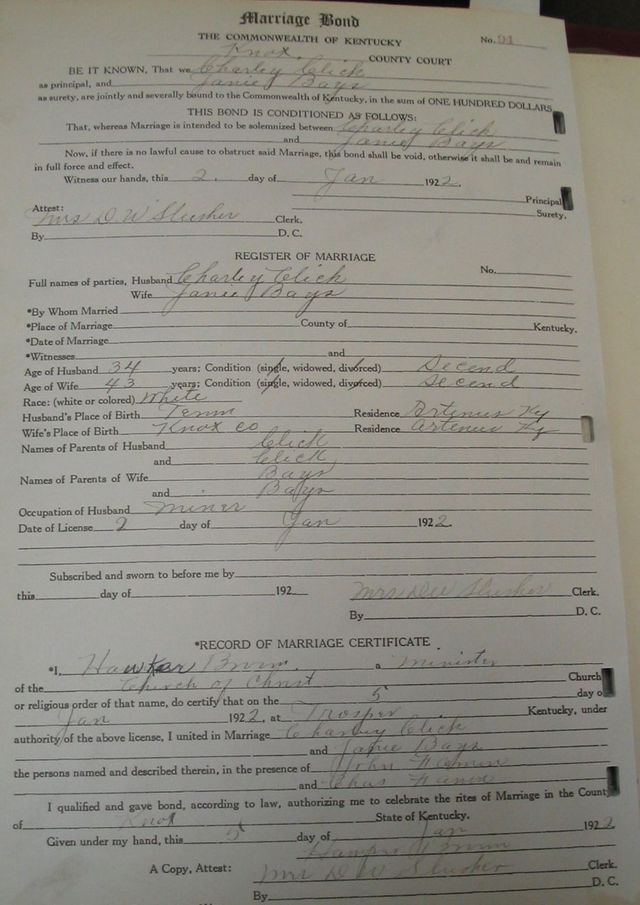 Marriage Bond
THE COMMONWEALTH OF KENTUCKY No. 91
Knox. COUNTY COURT
BE IT KNOWN, That we Charley Click
as principal, and Janie Bays
as surety, are jointly and severally bound to the Commonwealth of Kentucky, in the sum of ONE HUNDRED DOLLARS
THIS BOND IS CONDITIONED AS FOLLOWS:
That, whereas Marriage is intended to be solemnized between Charley Click
and Janie Bays
Now, if there is no lawful cause to obstruct said Marriage, this bond shall be void, otherwise it shall be and remain
in full force and effect.
Witness our hands, this 2. day of Jan 1922.
Principal
Attest: Surety.
Mrs D. W Slusher Clerk.
By D. C.
REGISTER OF MARRIAGE
Full names of parties, Husband Charley Click No.
Wife Janie Bays
*By Whom Married
*Place of Marriage County of Kentucky.
*Date of Marriage
*Witnesses and
Age of Husband 34 years; Condition (single, widowed, divorced) Second
Age of Wife 43 years; Condition (single, widowed, divorced) Second
Race: (white or colored) White
Husband's Place of Birth Tenn Residence Artemus Ky
Wife's Place of Birth Knox Co Residence Artemus Ky
Names of Parents of Husband Click
and Click
Names of Parents of Wife Bays
and Bays
Occupation of Husband Miner
Date of License 2 day of Jan 1922.
Subscribed and sworn to before me by
this day of 192 Mrs D W Slusher Clerk.
By D. C.
*RECORD OF MARRIAGE CERTIFICATE
*I, a Minister
of the Church of Christ Church
or religious order of that name, do certify that on the 5 day o
Jan 1922, at Trosper Kentucky, under
authority of the above license, I united in Marriage Charley Click
and Janie Bays
the persons named and described therein, in the presence of John
and Chas
I qualified and gave bond, according to law, authorizing me to celebrate the rites of Marriage in the Count
of Knox State of Kentucky.
Given under my hand, this 5 day of Jan 1922
A Copy, Attest: Mrs D W Slusher Clerk.
By D. C.